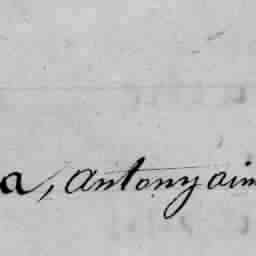 a, Antonyaim